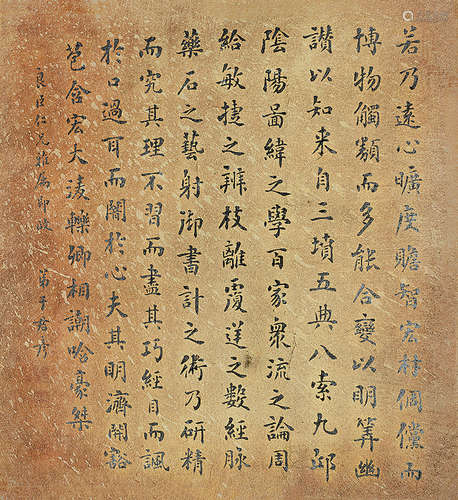 若乃遠心曠度贍智宏材倜儻而
博物觸類而多能合變以明筭幽
讚以知来自三墳五典八索九邱
陰陽啚緯之學百家衆流之論周
給敏捷之辨枝離覆逆之數經脉
藥石之藝射御書計之術乃研精
而究其理不習而盡其巧經目而諷
於口過耳而闇於心夫其明濟開豁
苞含宏大淩轢卿相謿哈豪桀
良臣仁兄雅属即政
弟于君彥